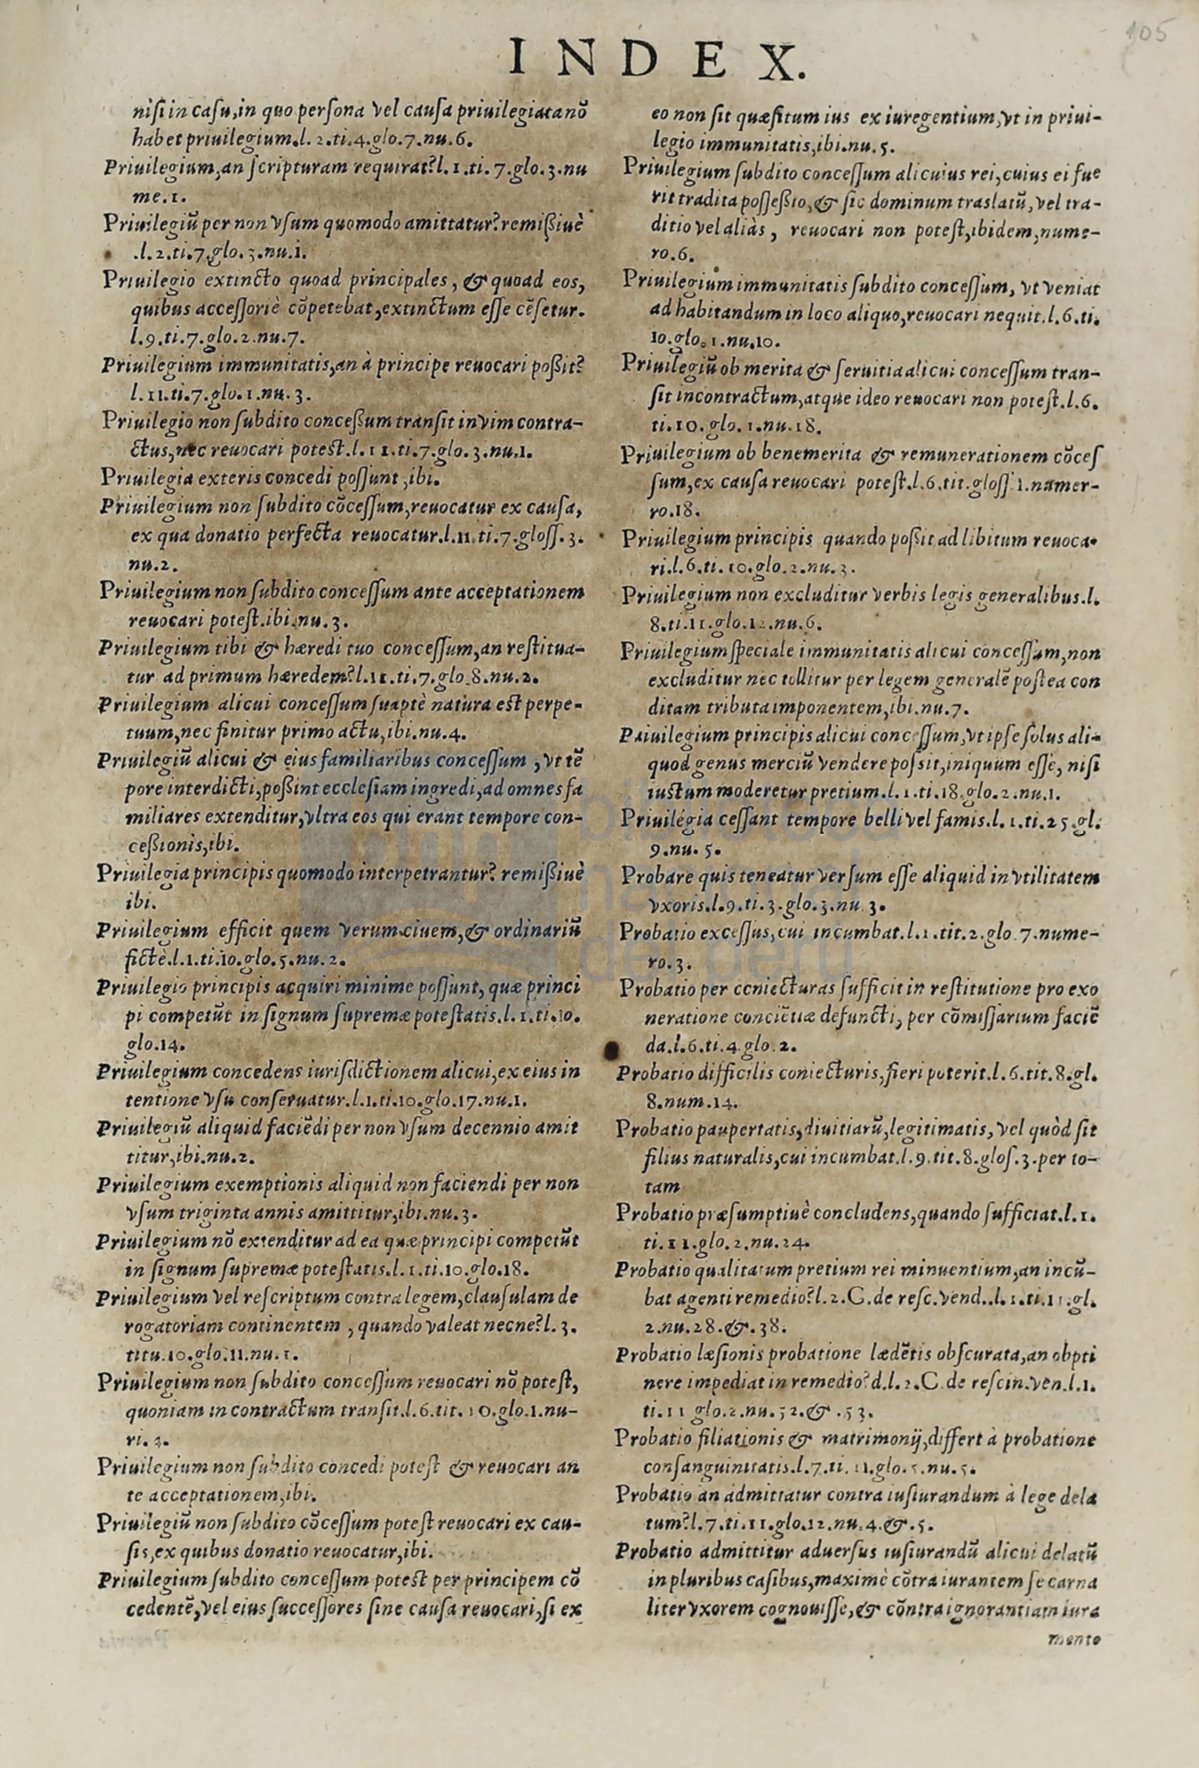 105
INDEX.
nisi in casu, in quo persona vel causa priuilegiata nõ
habet priuilegium.l. 2.ti.4.glo.7.nu.6.
Priuilegium, an scripturam requirat?l.1.ti.7.glo.3.nu
me.1.
Priuilegiũ per non vsum quomodo amittatur? remißiuè
.l.2.ti.7.glo.3.nu.1.
Priuilegio extincto quoad principales, & quoad eos,
quibus accessoriè cõpetebat, extinctum esse cẽsetur.
l.9.ti.7.glo.2.nu.7.
Priuilegium immunitatis, an à principe reuocari poßit?
l.11.ti.7.glo.1.nu.3.
Priuilegio non subdito conceßum transit in vim contra-
ctus, nec reuocari potest.l.11.ti.7.glo.3.nu.1.
Priuilegia exteris concedi possunt, ibi.
Priuilegium non subdito cõcessum, reuocatur ex causa,
ex qua donatio perfecta reuocatur.l.11.ti.7.gloss.3.
nu.2.
Priuilegium non subdito concessum ante acceptationem
reuocari potest.ibi.nu.3.
Priuilegium tibi & hæredi tuo concessum, an restitua-
tur ad primum hæredem?l.11.ti.7.glo.8.nu.2.
Priuilegium alicui concessum suaptè natura est perpe-
tuum, nec finitur primo actu, ibi.nu.4.
Priuilegiũ alicui & eius familiaribus concessum, vt tẽ
pore interdicti, poßint ecclesiam ingredi, ad omnes fa
miliares extenditur, vltra eos qui erant tempore con-
ceßionis, ibi.
Priuilegia principis quomodo interpetrantur? remißiuè
ibi.
Priuilegium efficit quem verum ciuem, & ordinariũ
fictè.l.1.ti.10.glo.5.nu.2.
Priuilegio principis acquiri minime possunt, quæ princi
pi competũt in signum supremæ potestatis.l.1.ti.10.
glo.14.
Priuilegium concedens iurisdictionem alicui, ex eius in
tentione vsu conseruatur.l.1.ti.10.glo.17.nu.1.
Priuilegiũ aliquid faciẽdi per non vsum decennio amit
titur, ibi.nu.2.
Priuilegium exemptionis aliquid non faciendi per non
vsum triginta annis amittitur, ibi.nu.3.
Priuilegium nõ extenditur ad ea quæ principi competũt
in signum supremæ potestatis.l.1.ti.10.glo.18.
Priuilegium vel rescriptum contra legem, clausulam de
rogatoriam continentem, quando valeat necne?l.3.
titu.10.glo.11.nu.1.
Priuilegium non subdito concessum reuocari nõ potest,
quoniam in contractum transit.l.6.tit.10.glo.1.nu-
ri.
Priuilegium non subdito concedi potest & reuocari an
te acceptationem, ibi.
Priuilegiũ non subdito cõcessum potest reuocari ex cau-
sis, ex quibus donatio reuocatur, ibi.
Priuilegium subdito concessum potest per principem cõ
cedentẽ, vel eius successores sine causa reuocari, si ex
eo non sit quæsitum ius ex iuregentium, vt in priui-
legio immunitatis, ibi.nu.5.
Priuilegium subdito concessum alicuius rei, cuius ei fue
rit tradita posseßio, & sic dominum traslatũ, vel tra-
ditio vel aliàs, reuocari non potest, ibidem, nume-
ro.6.
Priuilegium immunitatis subdito concessum, vt veniat
ad habitandum in loco aliquo, reuocari nequit.l.6.ti.
10.glo.1.nu.10.
Priuilegiũ ob merita & seruitia alicui concessum tran-
sit in contractum, atque ideo reuocari non potest.l.6.
ti.10.glo.1.nu.18.
Priuilegium ob benemerita & remunerationem cõces
sum, ex causa reuocari potest.l.6.tit.gloss.1.numer-
ro.18.
Priuilegium principis quando poßit ad libitum reuoca-
ri.l.6.ti.10.glo.2.nu.3.
Priuilegium non excluditur verbis legis generalibus.l.
8.ti.11.glo.12.nu.6.
Priuilegium speciale immunitatis alicui concessum, non
excluditur nec tollitur per legem generalẽ postea con
ditam tributa imponentem, ibi.nu.7.
Priuilegium principis alicui concessum, vt ipse solus ali-
quod genus merciũ vendere possit, iniquum esse, nisi
iustum moderetur pretium.l.1.ti.18.glo.2.nu.1.
Priuilegia cessant tempore belli vel famis.l.1.ti.25.gl.
9.nu.5.
Probare quis teneatur versum esse aliquid in vtilitatem
vxoris.l.9.ti.3.glo.3.nu.3.
Probatio excessus, cui incumbat.l.1.tit.2.glo.7.nume-
ro.3.
Probatio per coniecturas sufficit in restitutione pro exo
neratione conciẽtiæ defuncti, per cõmissarium faciẽ
da.l.6.ti.4.glo.2.
Probatio difficilis coniecturis, fieri poterit.l.6.tit.8.gl.
8.num.14.
Probatio paupertatis, diuitiarũ, legitimatis, vel quòd sit
filius naturalis, cui incumbat.l.9.tit.8.glos.3.per to-
tam
Probatio præsumptiuè concludens, quando sufficiat.l.1.
ti.11.glo.2.nu.24.
Probatio qualitatum pretium rei minuentium, an incũ-
bat agenti remedio?l.2.C.de resc.vend..l.1.ti.11.gl.
2.nu.28.&.38.
Probatio læsionis probatione lædẽtis obscurata, an obpti
nere impediat in remedio?d.l.2.C.de rescin.ven.l.1.
ti.11 glo.2.nu.52.&.53.
Probatio filiationis & matrimonij, differt à probatione
consanguinitatis.l.7.ti.11.glo.5.nu.5.
Probatio an admittatur contra iusiurandum à lege dela
tum?l.7.ti.11.glo.12.nu.4.&.5.
Probatio admittitur aduersus iusiurandũ alicui delatũ
in pluribus casibus, maximè cõtra iurantem se carna
liter vxorem cognouisse, & cõntra ignorantiam iura
mento